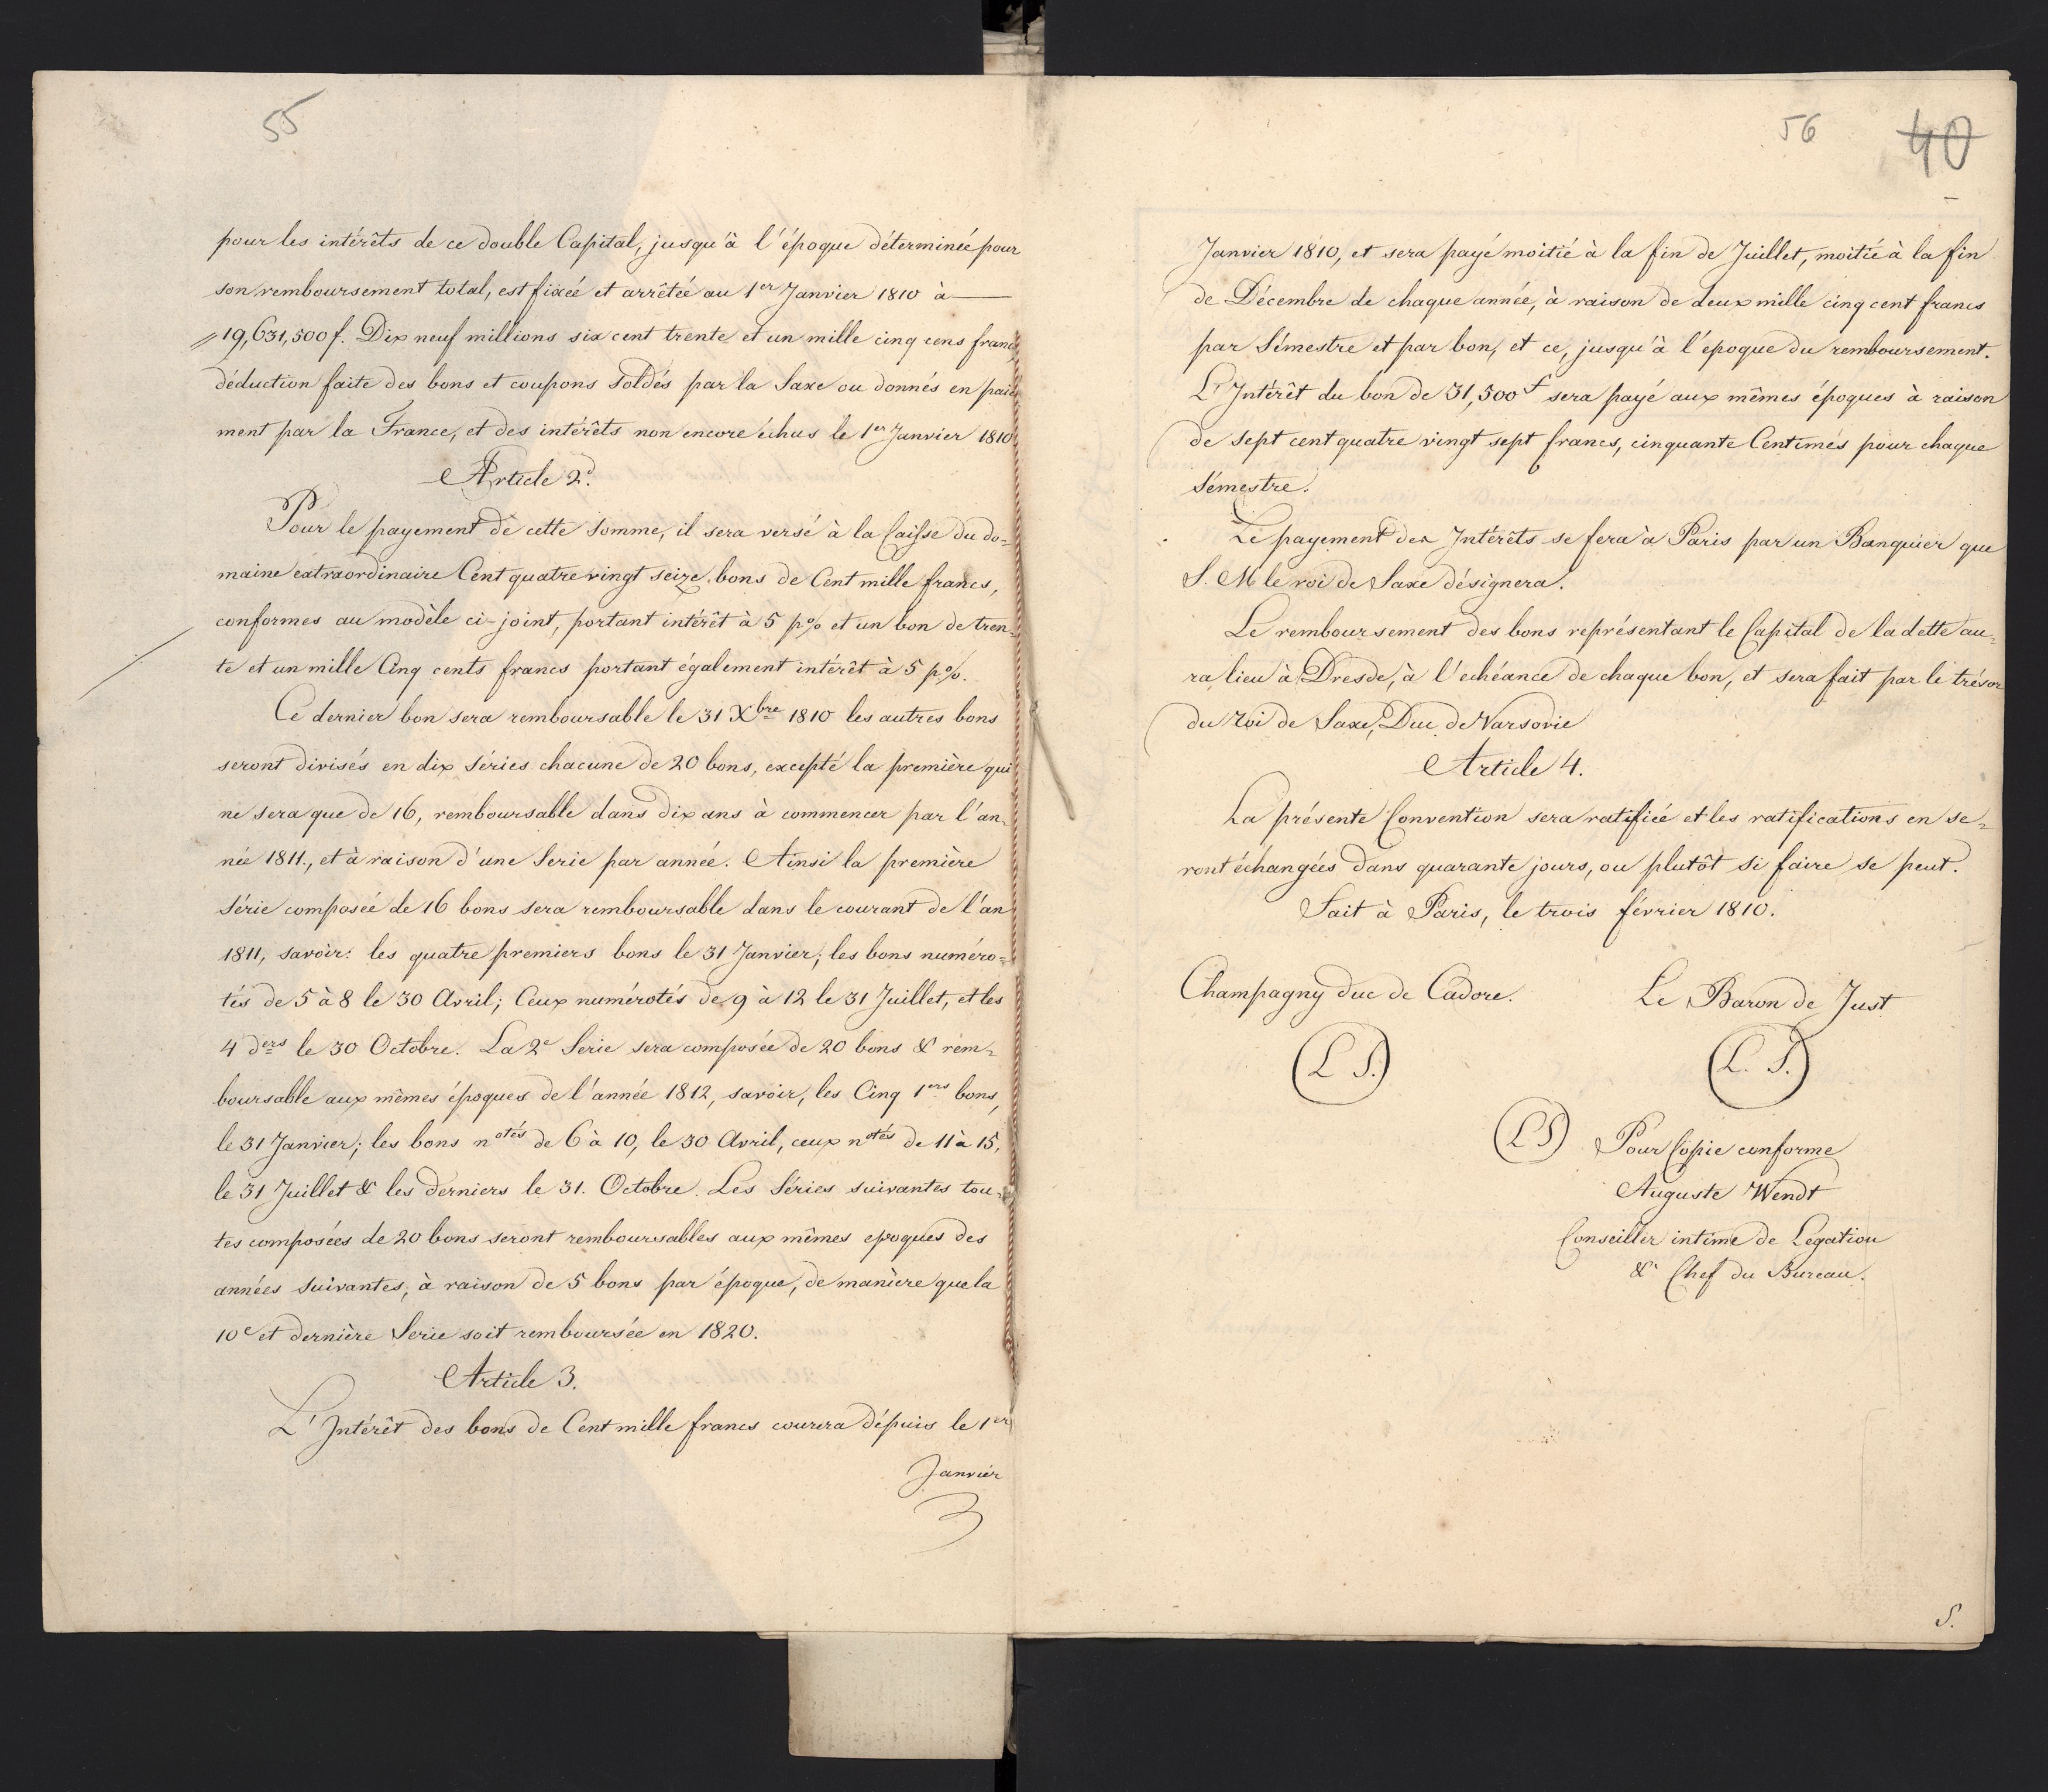 55
pour les intérêts de ce double Capital, jusqu'à l'époque déterminée pour
son remboursement total, est fixée et arrêtée au 1er Janvier 1810 à —
19,631,500 f. Dix neuf millions six cent trente et un mille cinq cens francs
déduction faite des bons et coupons soldés par la Saxe ou donnés en paie
ment par la France, et des intérêts non encore échus le 1er Janvier 1810
Article 2d.
Pour le payement de cette somme, il sera versé à la Caisse du do-
maine extraordinaire Cent quatre vingt seize bons de Cent mille francs,
conformes au modèle ci-joint, portant intérêt à 5 p% et un bon de tren-
te et un mille Cinq cents francs portant également intérêt à 5 p%.
Ce dernier bon sera remboursable le 31 Xbre 1810 les autres bons
seront divisés en dix séries chacune de 20 bons, excepté la première qui
ne sera que de 16, remboursable dans dix ans à commencer par l'an-
née 1811., et à raison d'une Serie par année. Ainsi la première
Série composée de 16 bons sera remboursable dans le courant de l'an
1811, savoir: les quatre premiers bons le 31 Janvier; les bons numéro-
tés de 5 à 8 le 30 Avril; Ceux numérotés de 9 à 12 le 31 Juillet, et les
4 ders le 30 Octobre. La 2e Série sera composée de 20 bons & rem-
boursable aux mêmes époques de l'année 1812, savoir, les Cinq 1ers bons,
le 31 Janvier; les bons notés de 6 à 10, le 30 Avril, ceux notés de 11 à 15,
le 31 Juillet & les derniers le 31. Octobre. Les Séries suivantes tou-
tes composées de 20 bons seront remboursables aux mêmes epoques des
années suivantes, à raison de 5 bons par époque, de manière que la
10e et dernière Serie soit remboursée en 1820.
Article 3.
L'Intérêt des bons de Cent mille francs courera dépuis le 1er
Janvier
56
40
Janvier 1810, et sera payé moitié à la fin de Juillet, moitié à la fin
de Décembre de chaque année, à raison de deux mille cinq cent francs
par Sémestre et par bon, et ce, jusqu'à l'époque du remboursement.
L'Intérêt du bon de 31,500 f sera payé aux mêmes époques à raison
de sept cent quatre vingt sept francs, cinquante Centimes pour chaque
Sémestre.
Le payement des Intérêts se fera à Paris par un Banquier que
S. M le roi de Saxe désignera.
Le remboursement des bons représentant le Capital de la dette au-
ra lieu à Dresde, à l'echéance de chaque bon, et sera fait par le trésor
du roi de Saxe, Duc de Varsovie
Article 4.
La présente Convention sera ratifiée et les ratifications en se-
ront échangées dans quarante jours, ou plutôt si faire se peut.
Fait à Paris, le trois février 1810.
Champagny duc de Cadore. Le Baron de Just
(L S.) (L. S.)
(LS) Pour Copie conforme
Auguste Wendt
Conseiller intime de Legation
& Chef du Bureau.
S.